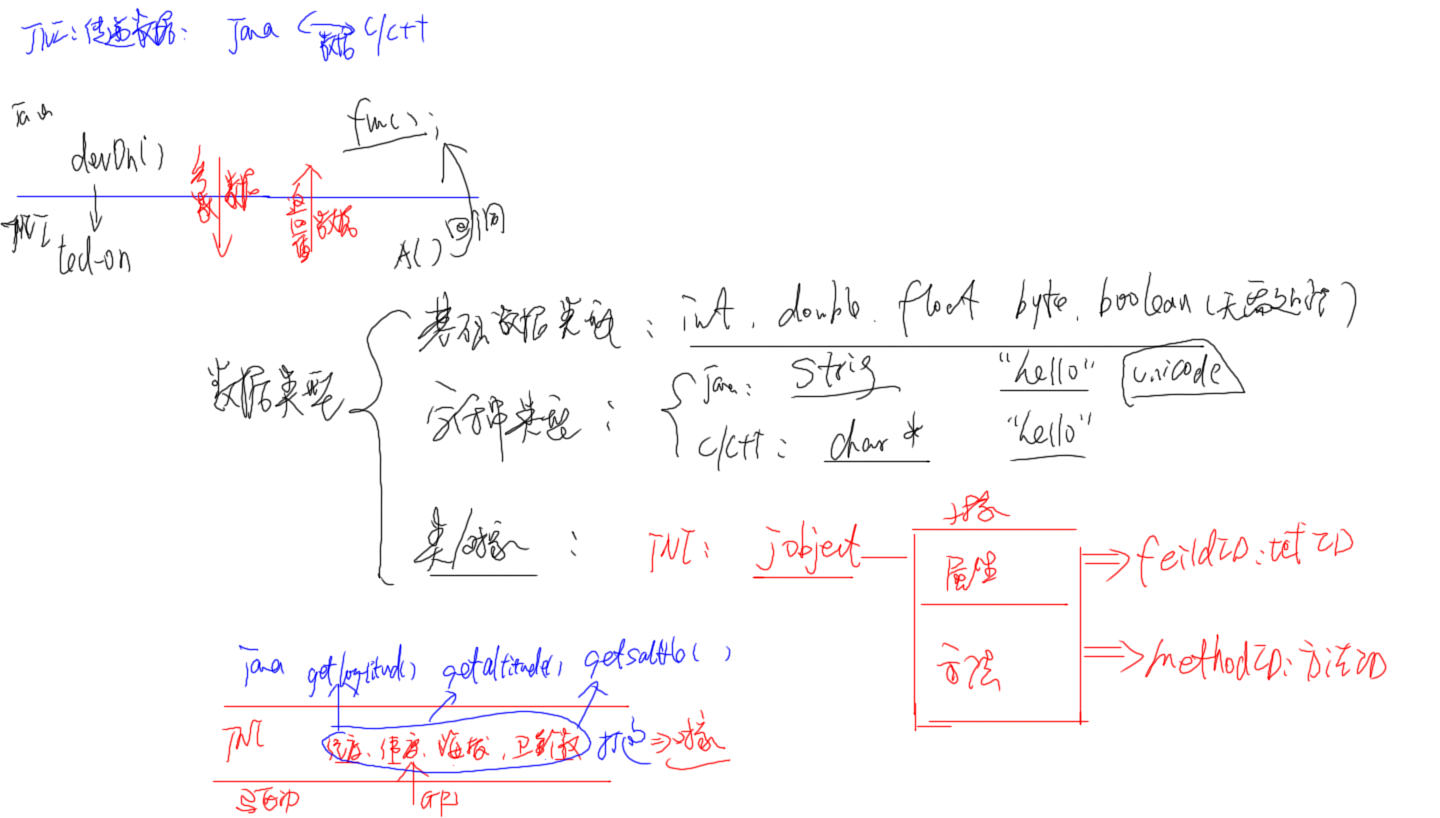 JNI:传递数据: Java 数据 C/C++
Java
devOn()
func();
参数
数据
返回值
数据
JNI
led-on
A()
回调
数据类型
基础数据类型: int, double, float byte, boolean (无需处理)
字符串类型: Java: Strig "hello" unicode
C/C++: char * "hello"
类/对象: JNI: jobject
对象
属性 feildID:域ID
方法 methodID:方法ID
java getlogtitud() getaltitude()
JNI 经度、伟度、海拔, 卫星数 打包 对象